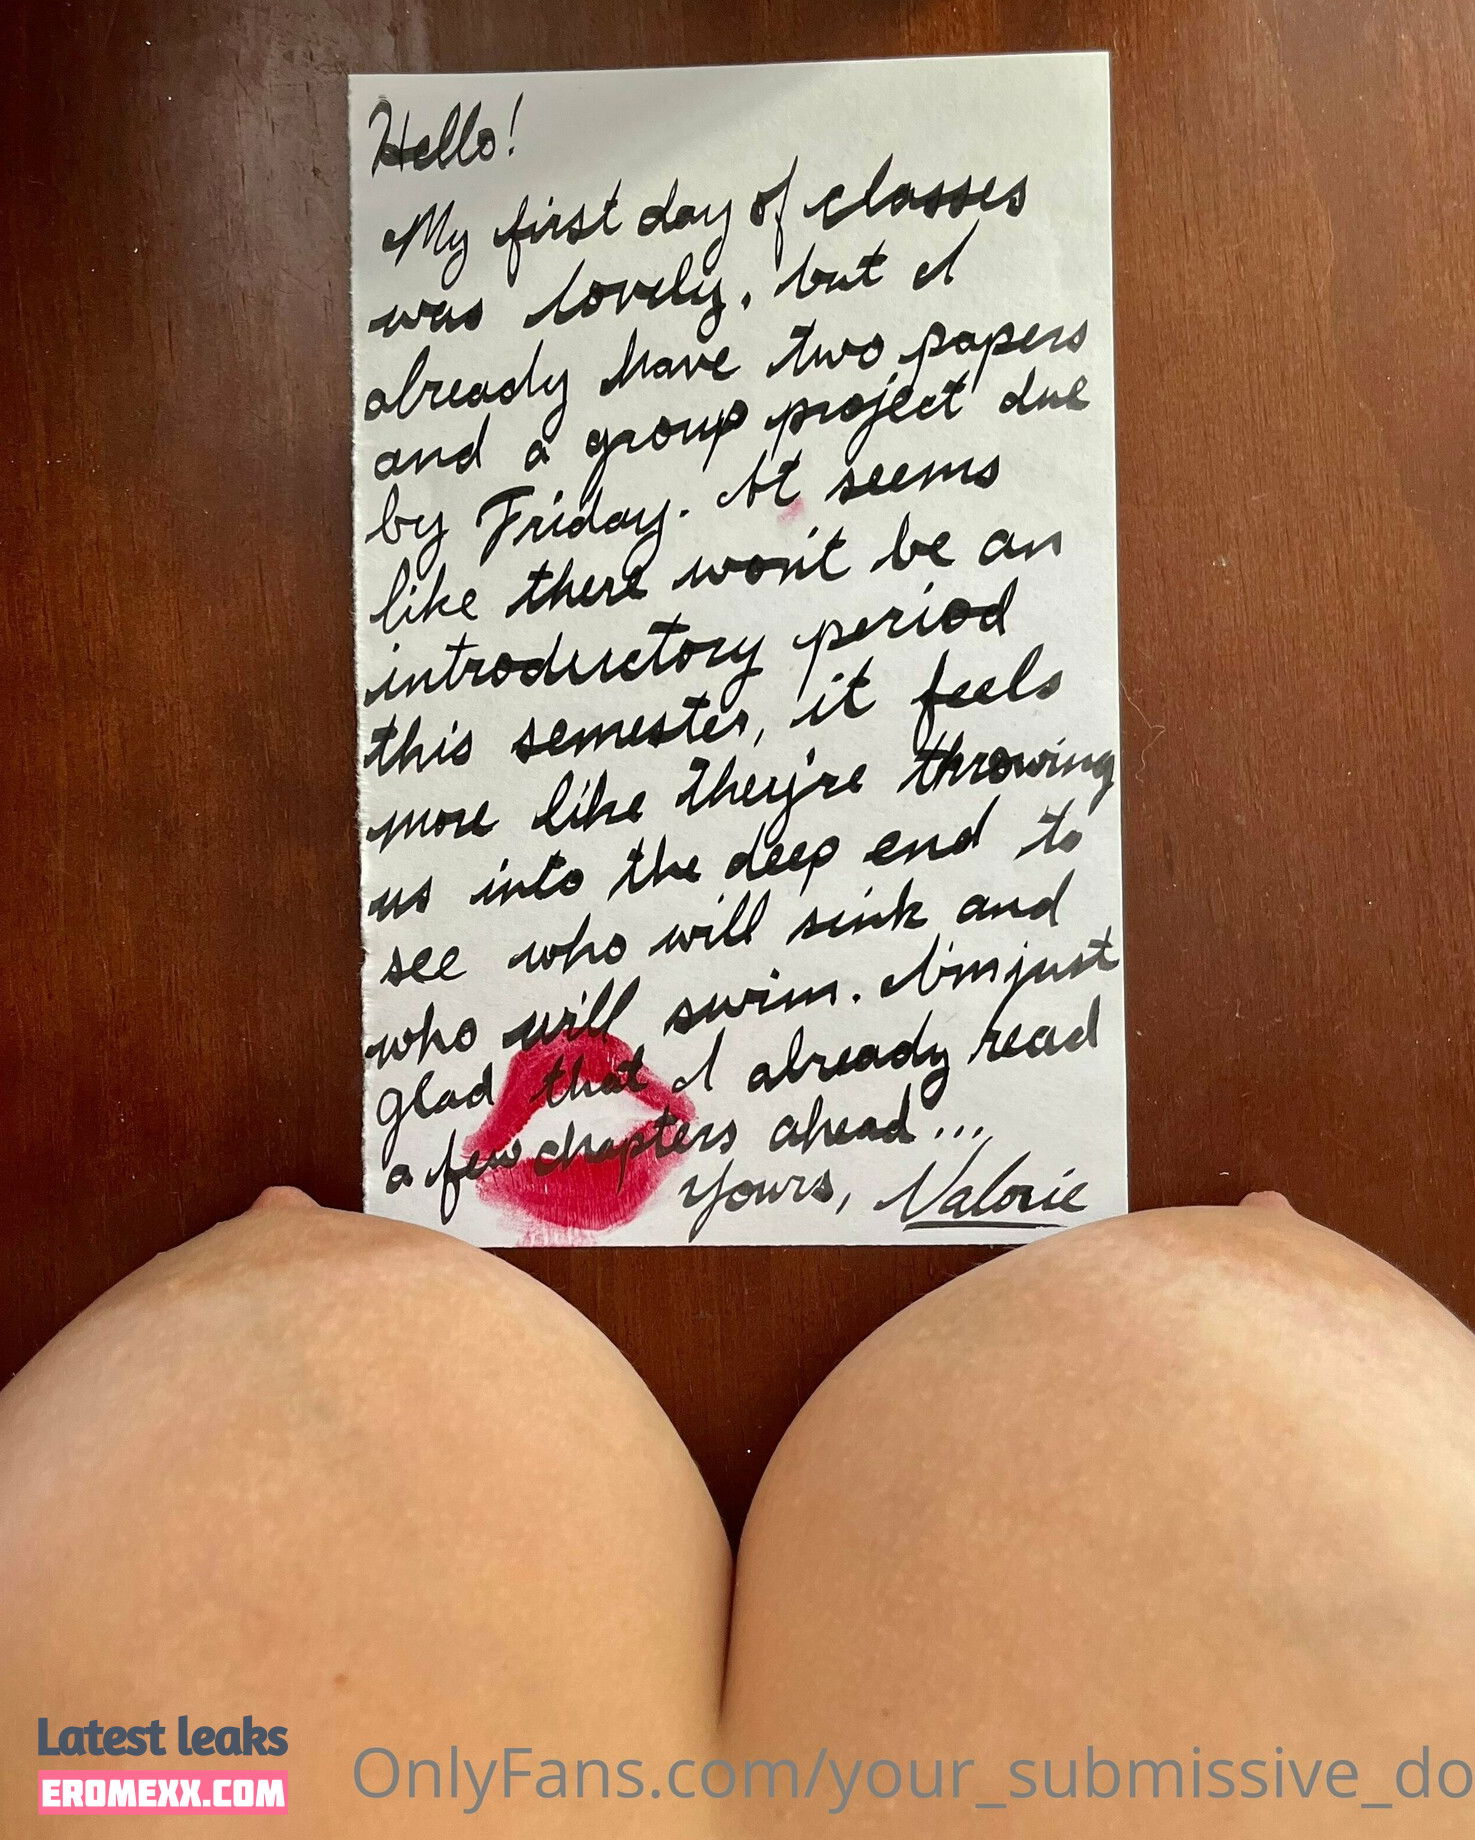 Hello!
My first day of classes
was lovely, but I
already have two papers
and a group project due
by Friday. It seems
like there won't be an
introductory period
this semester, it feels
more like they're throwing
us into the deep end to
see who will sink and
who will swim. I'm just
glad that I already read
a few chapters ahead...
Yours, Valorie
Latest leaks
EROMEXX.COM
OnlyFans.com/your_submissive_do